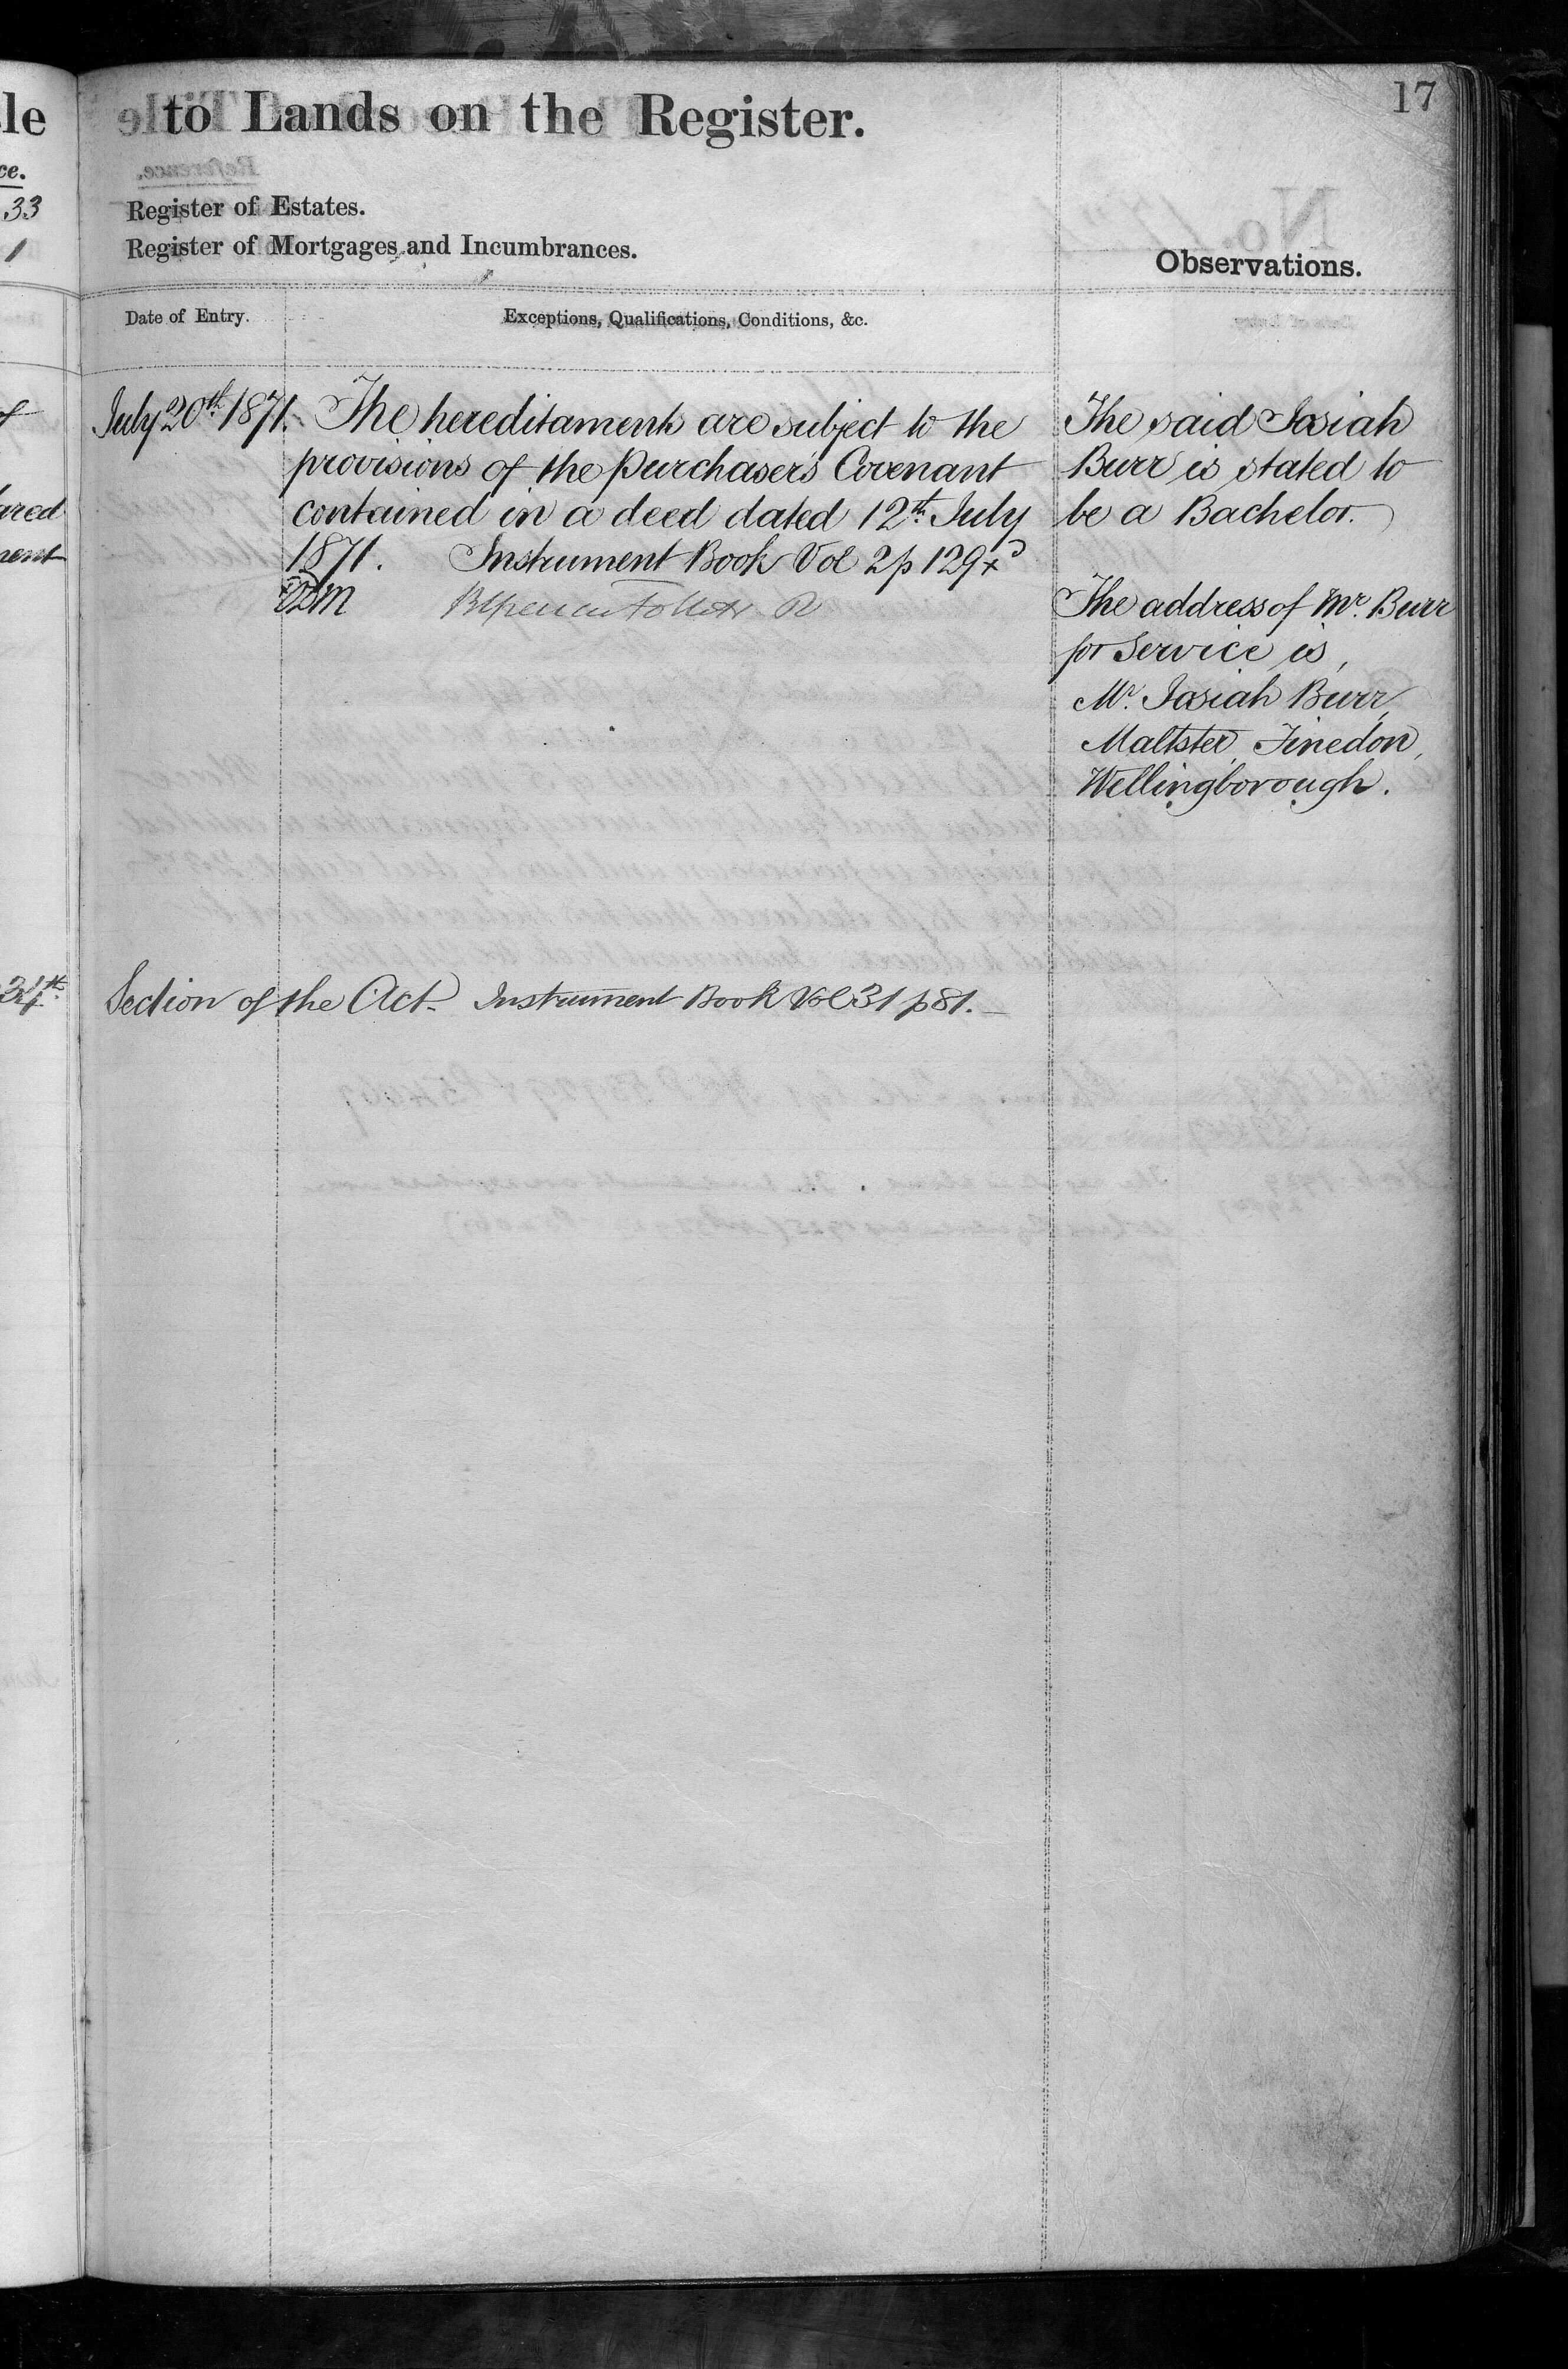 17
le to Lands on the Register.
ce.
33
Register of Estates.
1
Register of Mortgages and Incumbrances.
Observations.
Date of Entry.
Exceptions, Qualifications, Conditions, &c.
July 20th 1871. The hereditaments are subject to the
provisions of the Purchaser's Covenant
contained in a deed dated 12th July
1871. Instrument Book Vol 2 p 129
The said Josiah
Burr is stated to
be a Bachelor.
The address of Mr. Burr
for Service is,
Mr. Josiah Burr,
Maltster, Finedon,
Wellingborough.
34th Section of the Act Instrument Book Vol 31 p 81.